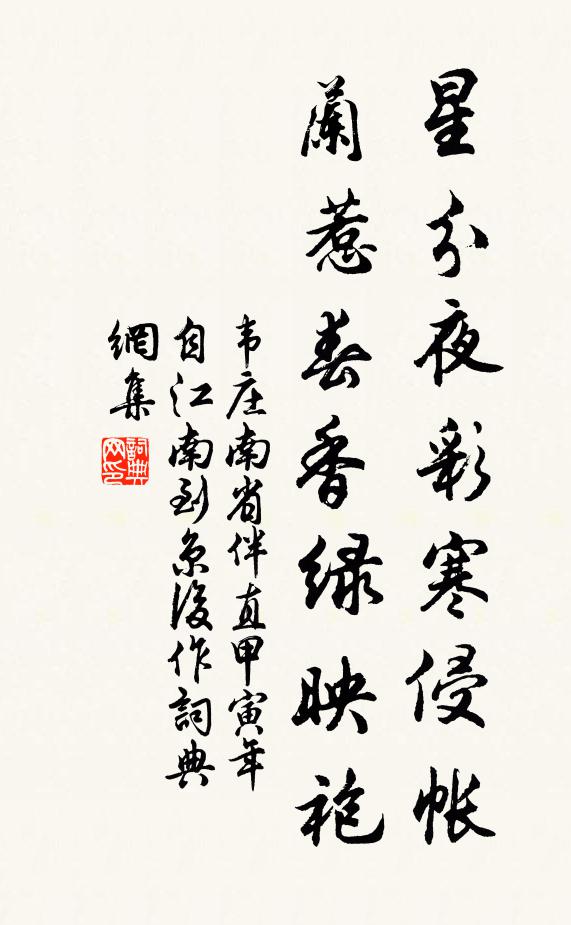 星分夜彩寒侵帐
兰惹春香绿映袍
韦庄南省伴直甲寅年
自江南到京後作詞典
網集
詞典網印